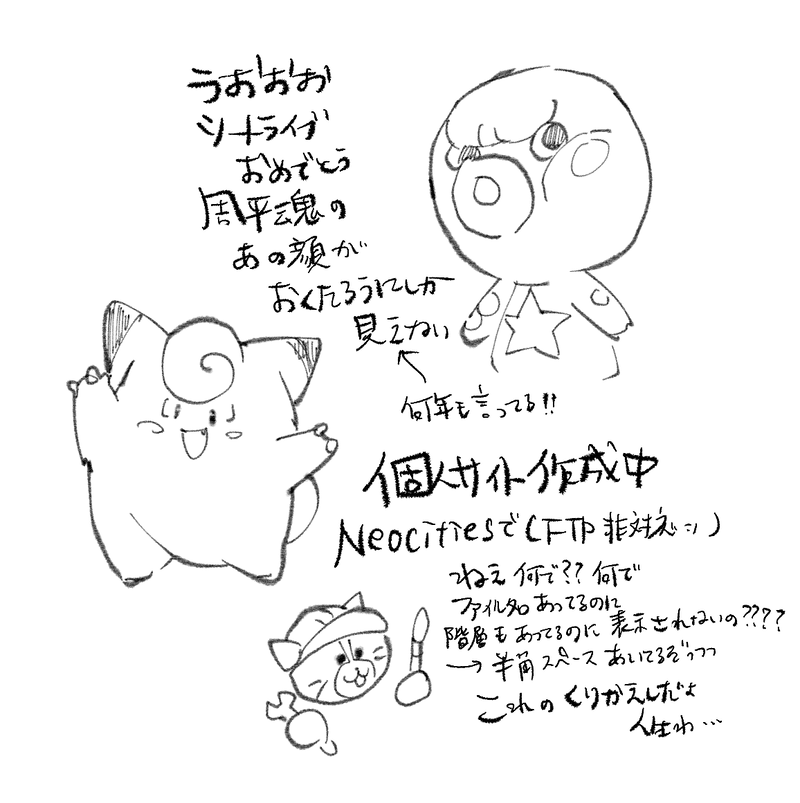 うおおお
シートライブ
おめでとう
周平魂の
あの顔が
おくたろうにしか
見えない
何年も言ってる!!
個人サイト作成中
Neocitiesで(FTP非対応ニニ)
ねえ 何で?? 何で
ファイル名あってるのに
階層もあってるのに 表示されないの????
→ 半角スペース あいてるぞっっっ
これの くりかえしだよ
人生わ…